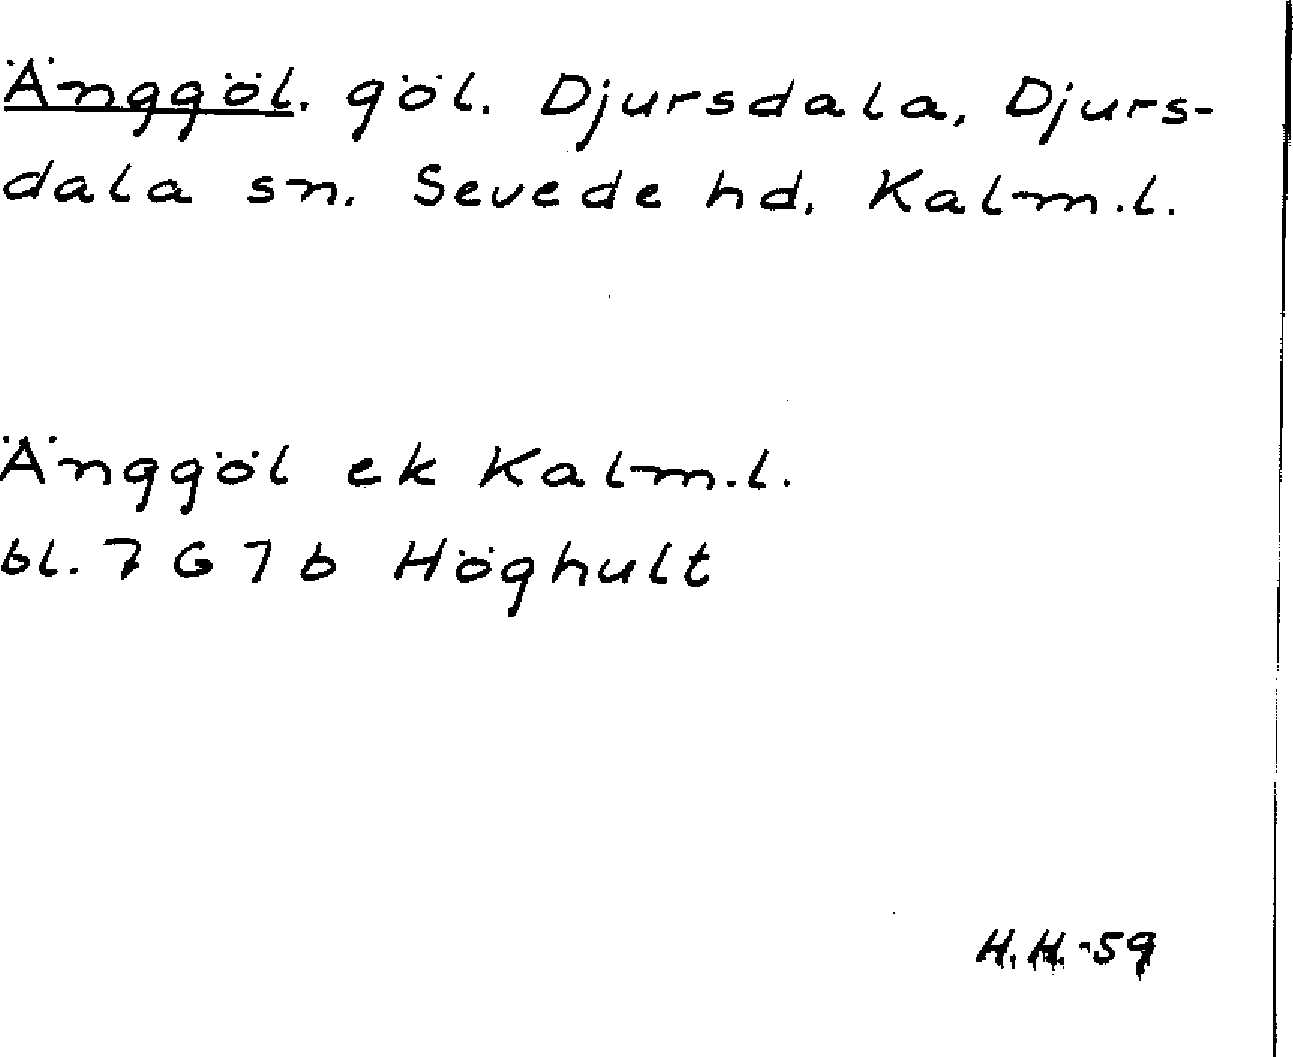 Änggöl. göl. Djursdala, Djurs-
dala sn. Sevede hd. Kalm.l.
Änggöl ek Kalm.l.
bl. 7 G 7 b Höghult
H.H.-59